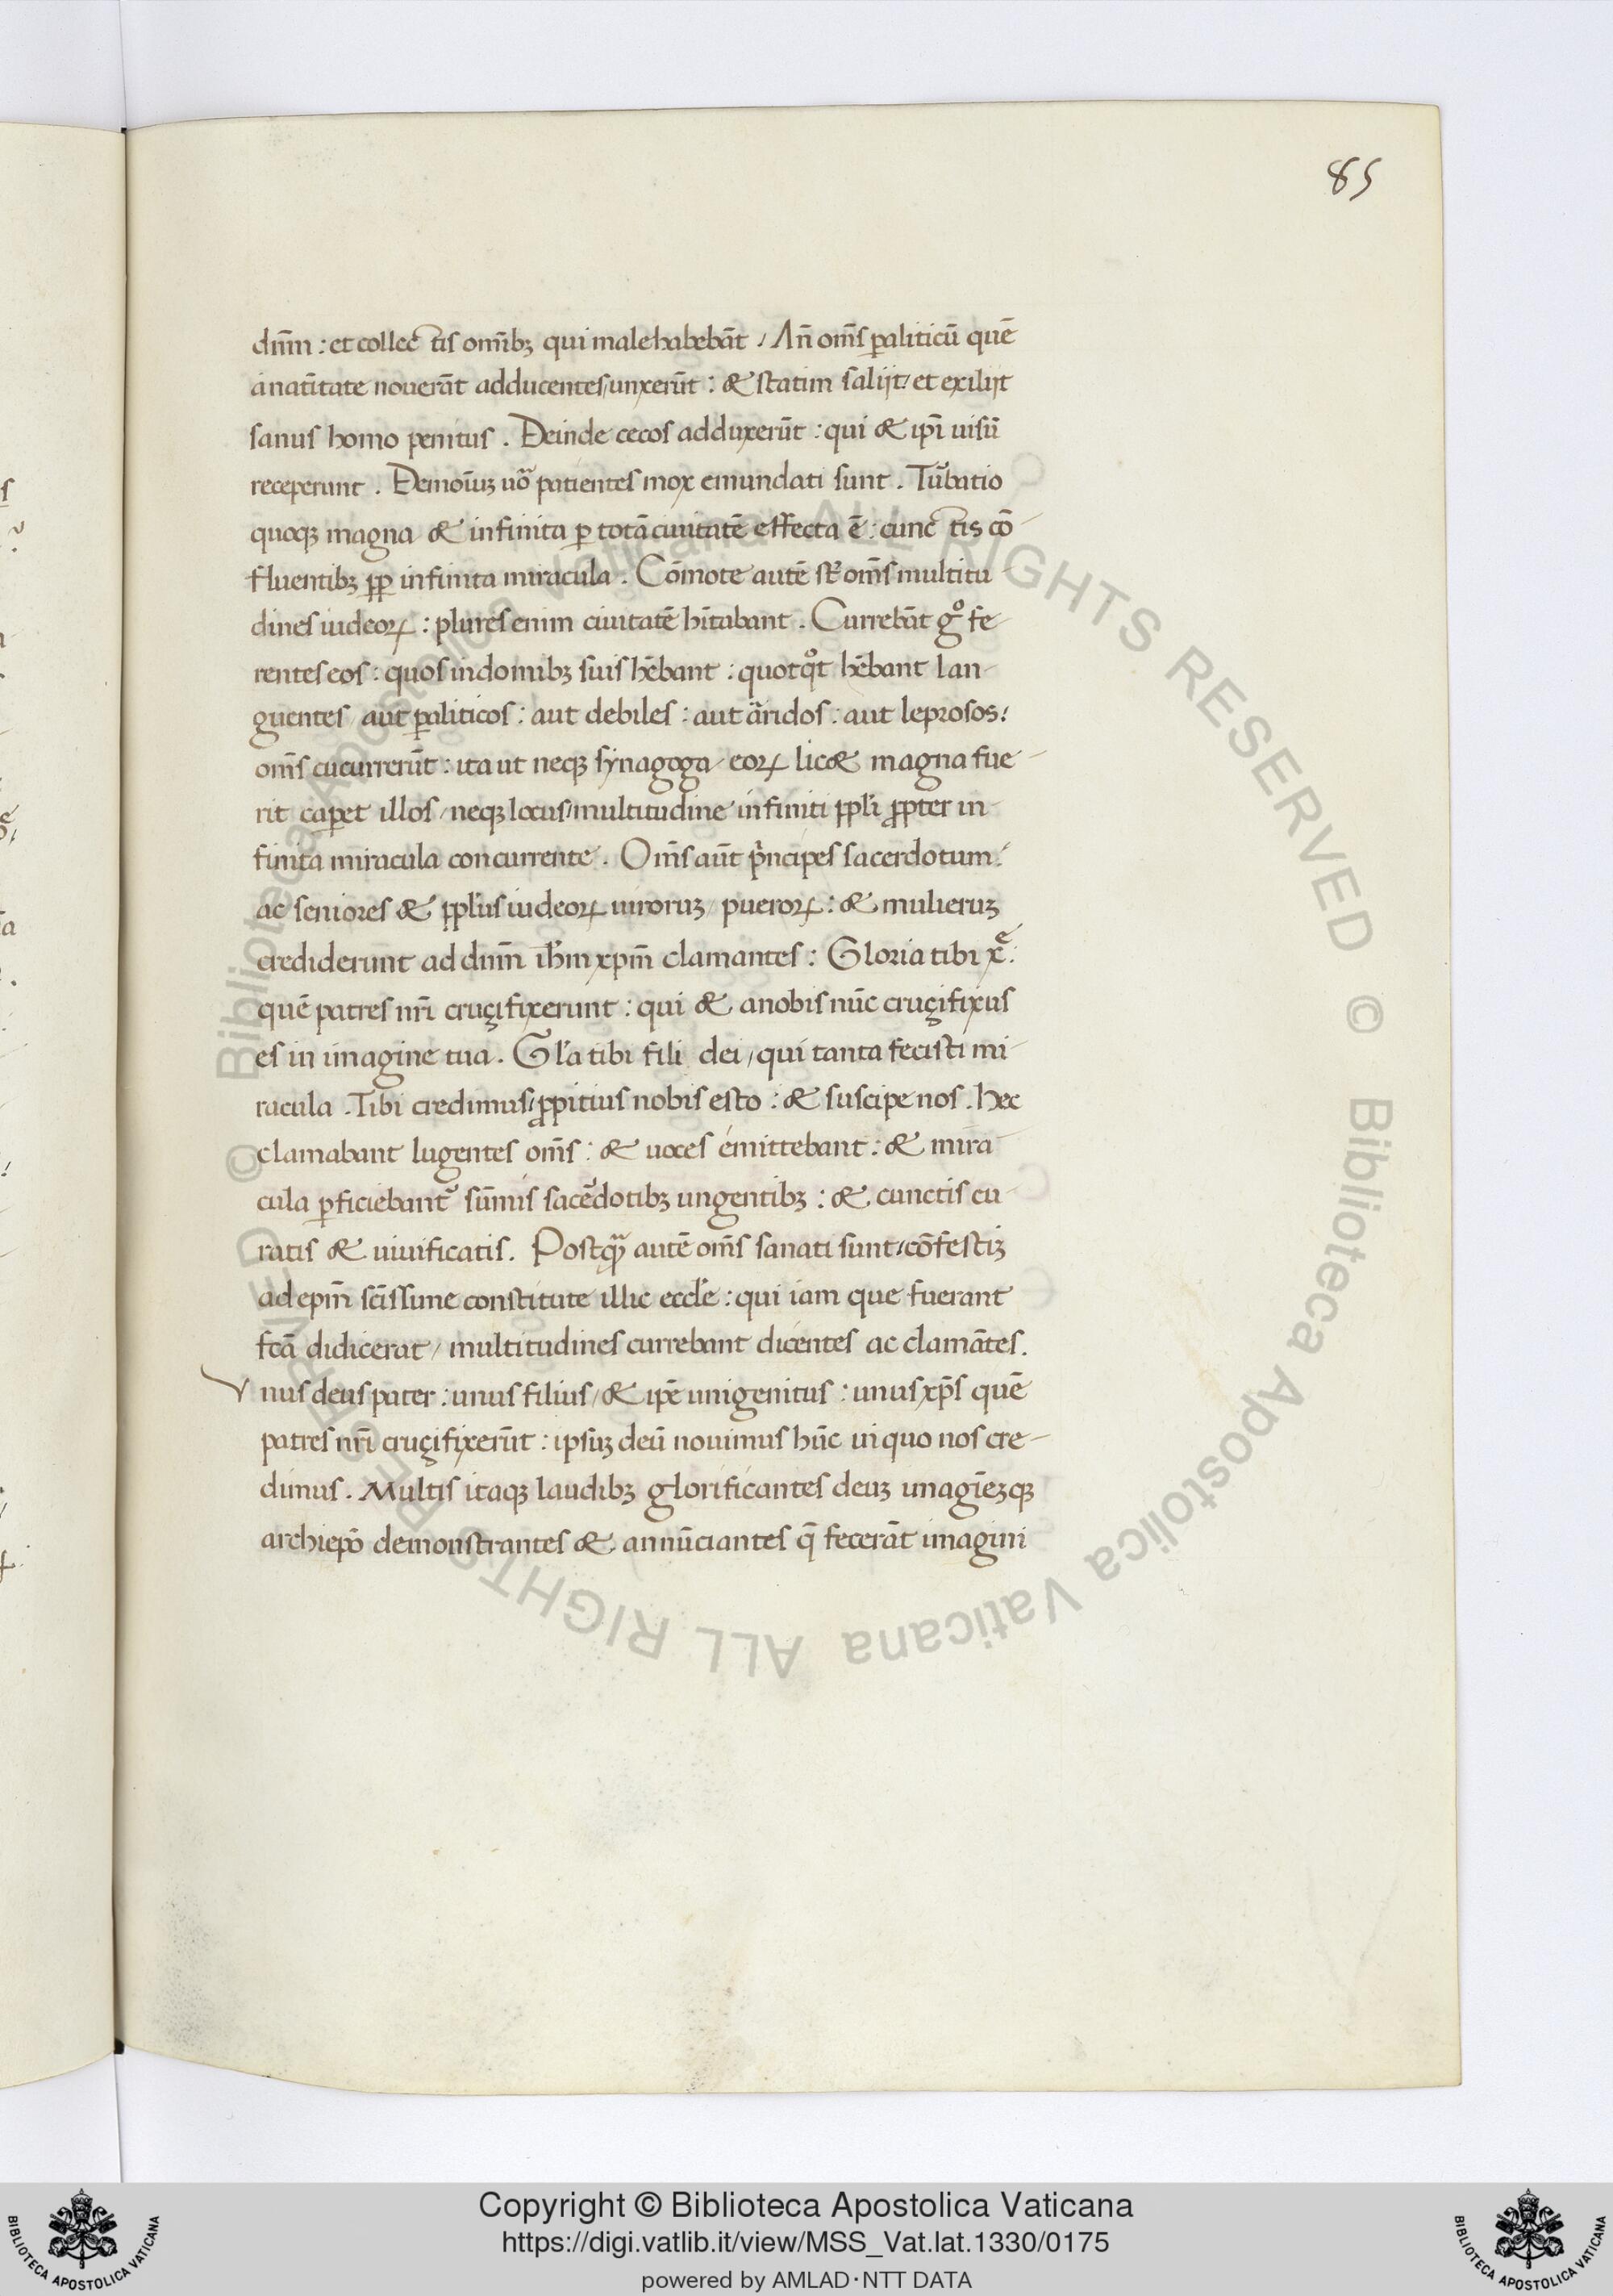 85
dn̄m : et collectis om̄ibꝫ qui male habebāt / An̄ om̄s ꝑaliticū quē
a natītate nouerāt adducentes / unxerūt : & statim saliĳt / et exiliĳt
sanus homo penitus . Deinde cecos adduxerūt : qui & ip̄i uisū
receperunt . Demoīuꝫ uo͛ patientes mox emundati sunt . Tu͛batio
quoqꝫ magna & infinita ꝑ totā ciuitatē effecta ē : cunctis cō-
fluentibꝫ ꝓp̄ infinita miracula . Cōmote autē st̄ om̄s multitu-
dines iudeoꝝ : plures enim ciuitatē hītabant . Currebāt gº fe-
rentes eos : quos in domibꝫ suis hēbant : quotqºt hēbant lan-
guentes / aut ꝑaliticos : aut debiles : aut aridos : aut leprosos :
om̄s cucurrerūt : ita ut neqꝫ synagoga eoꝝ lic& magna fue-
rit caꝑet illos / neqꝫ locus / multitudine infiniti ppl̄i ꝓpter in-
finita miracula concurrente . Om̄s aūt pͥncipes sacerdotum :
ac seniores & ppl̄us iudeoꝝ uiroruꝫ / pueroꝝ : & mulieruꝫ
crediderunt ad dn̄m ih̄m xp̄m clamantes : Gloria tibi xͤ :
quē patres nr̄i cruçifixerunt : qui & a nobis nūc cruçifixus
es in imagine tua . Gl̄a tibi fili dei / qui tanta fecisti mi-
racula . Tibi credimus / ꝓpitius nobis esto : & suscipe nos . Hec
clamabant lugentes om̄s : & uoces emittebant : & mira-
cula ꝑficiebant᷑ sūmis sace͛dotibꝫ ungentibꝫ : & cunctis cu-
ratis & uiuificatis . Postqᷓ autē om̄s sanati sunt / cōfestiꝫ
ad ep̄m scīssime constitute illic eccl̄e : qui iam que fuerant
fcā didicerat / multitudines currebant dicentes ac clamātes .
Vnus deus pater : unus filius / & ip̄e unigenitus : unus xp̄s quē
patres nr̄i cruçifixerūt : ipsuꝫ deū nouimus hūc in quo nos cre-
dimus . Multis itaqꝫ laudibꝫ glorificantes deuꝫ imagīeꝫqꝫ
archiep̄o demonstrantes & annūciantes q̄ fecerāt imagini
© Biblioteca Apostolica Vaticana ALL RIGHTS RESERVED © Biblioteca Apostolica Vaticana ALL RIGHTS RESERVED
Copyright © Biblioteca Apostolica Vaticana
https://digi.vatlib.it/view/MSS_Vat.lat.1330/0175
powered by AMLAD·NTT DATA
BIBLIOTECA APOSTOLICA VATICANA
BIBLIOTECA APOSTOLICA VATICANA